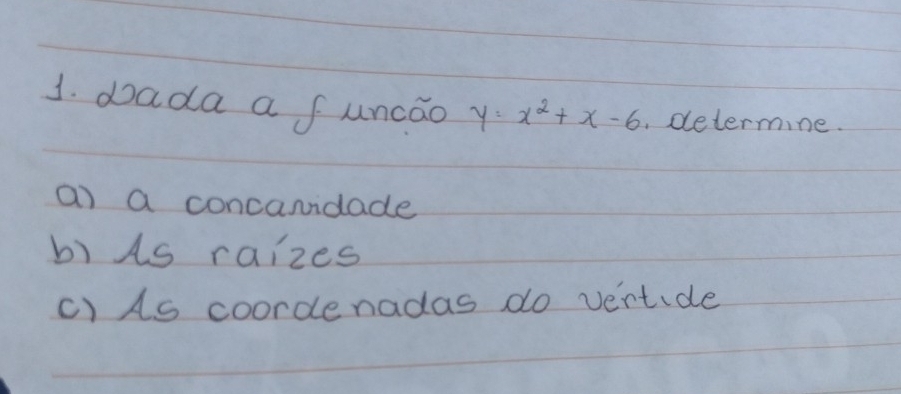 1. Dada a função y = x² + x - 6. determine.
a) a concavidade
b) As raízes
c) As coordenadas do vértide